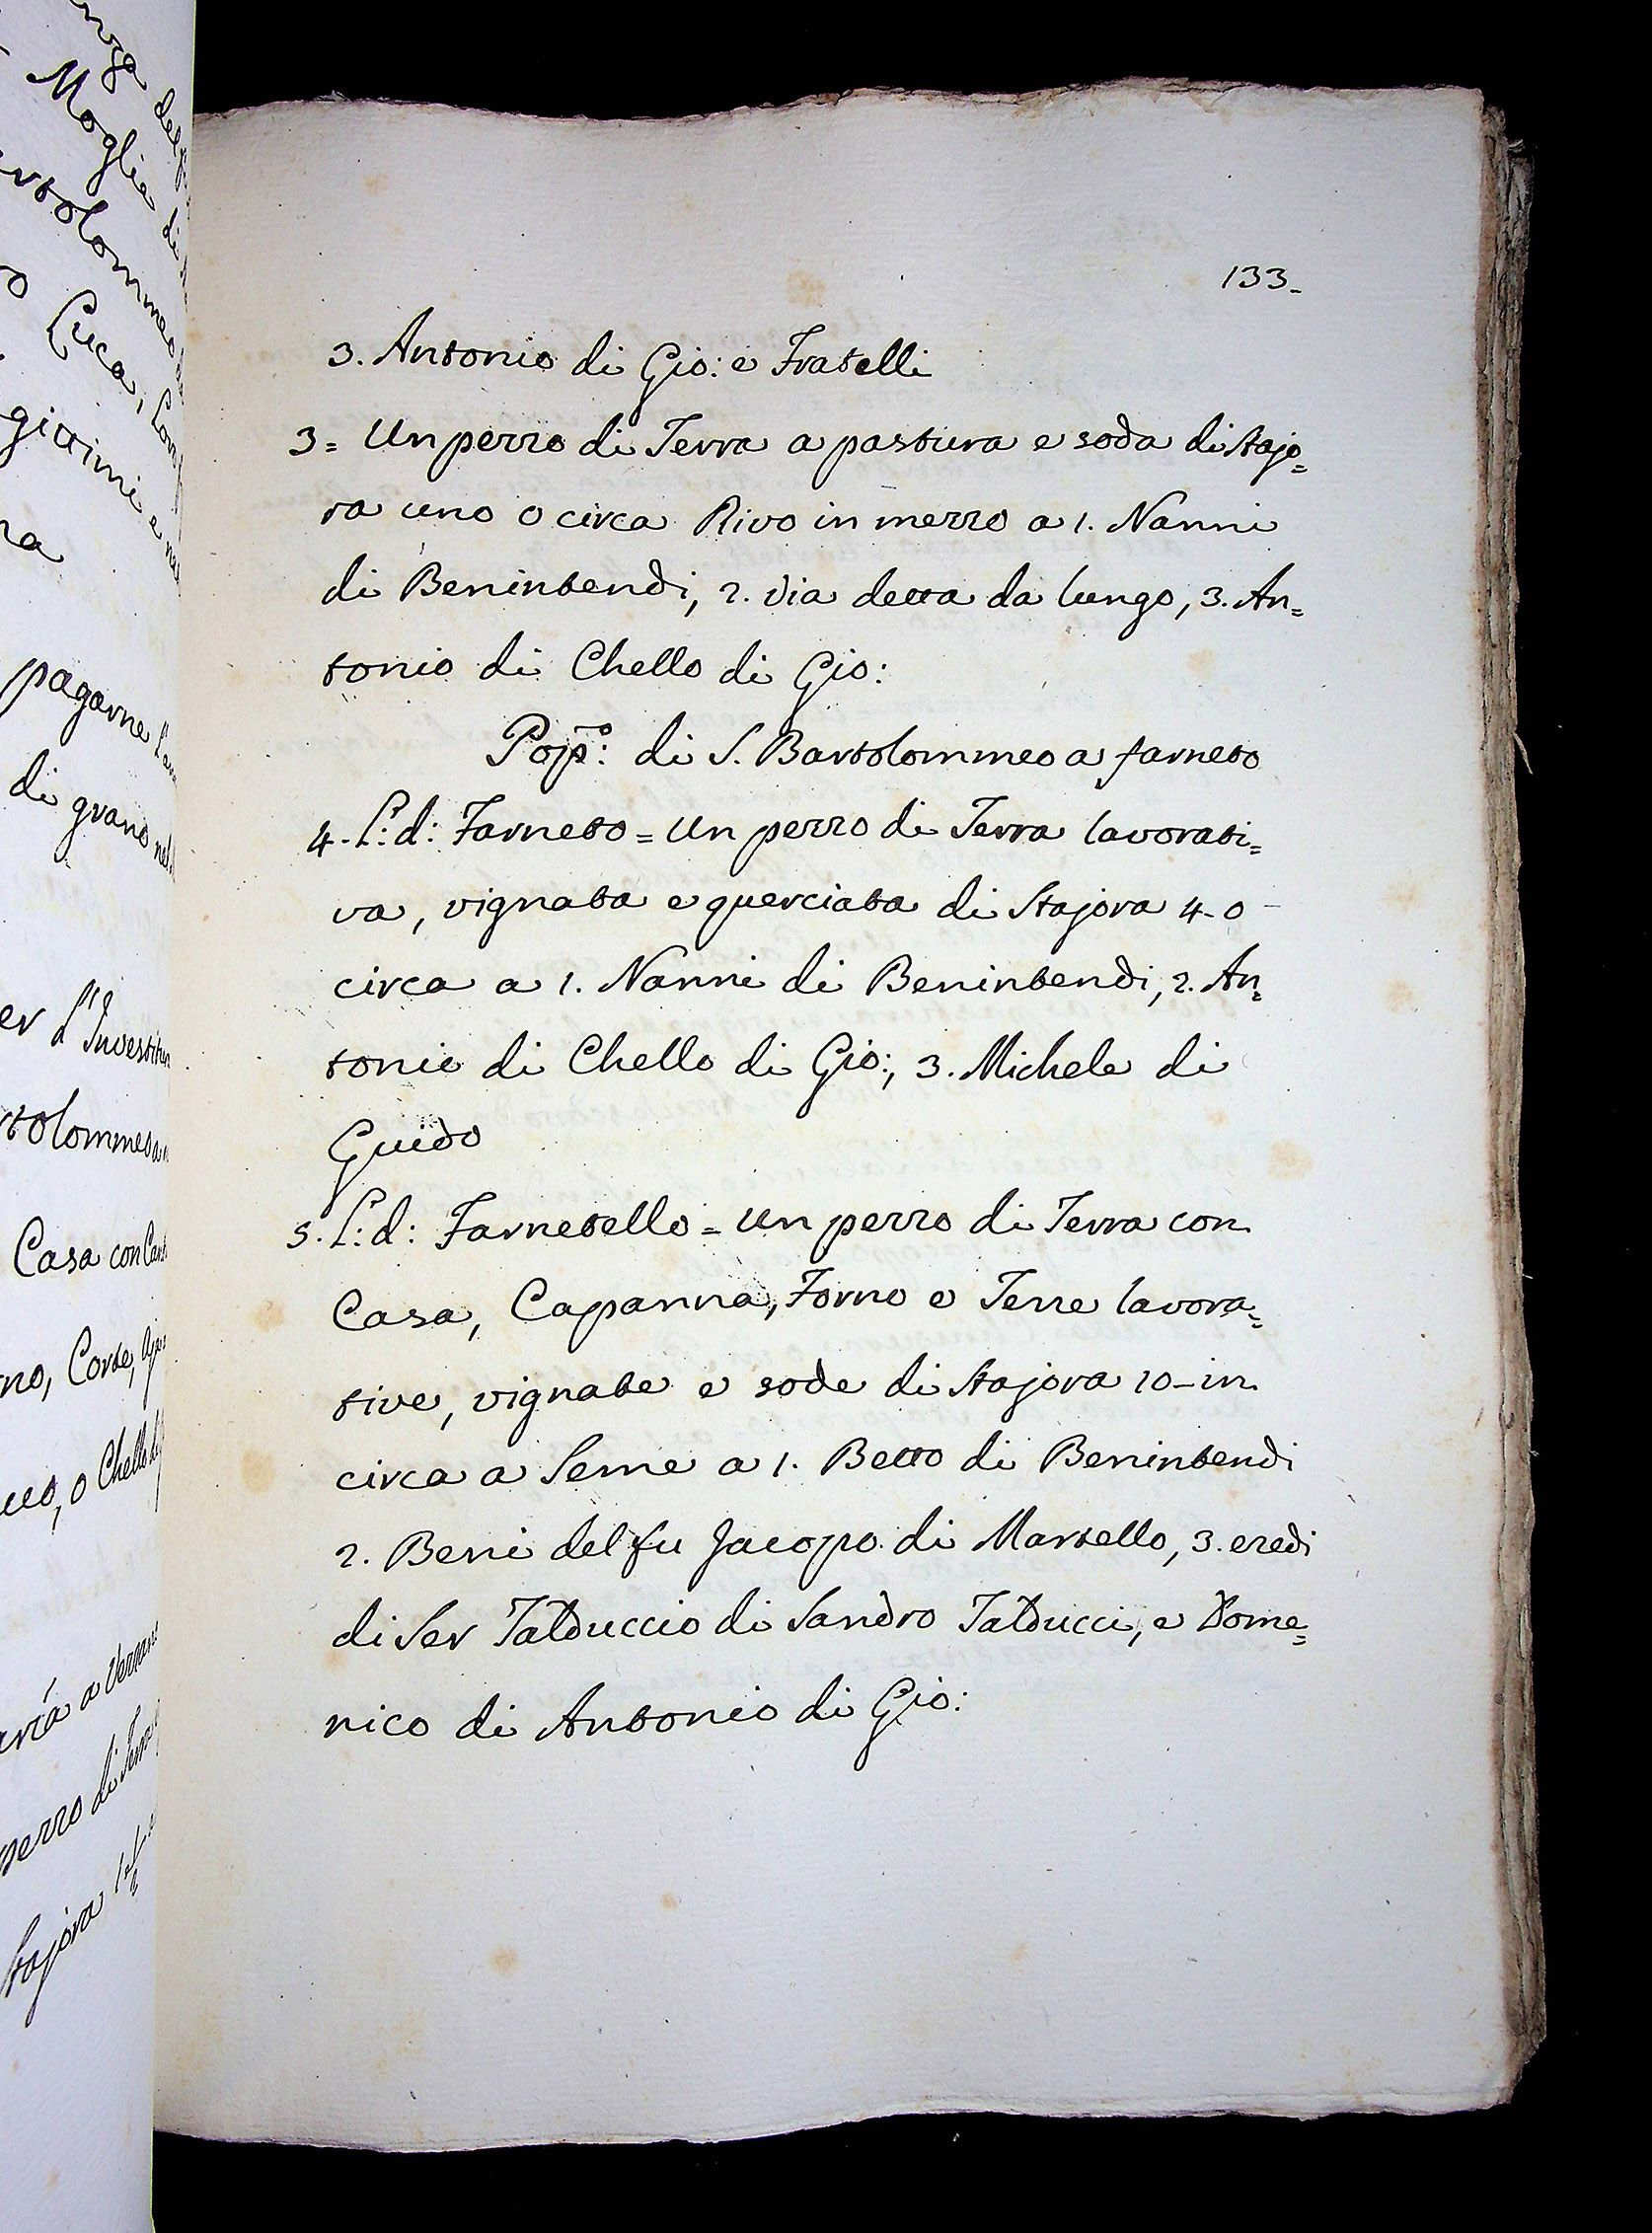 133.
3. Antonio di Gio: e Fratelli
3= Un pezzo di Terra a pastura e soda di Stajo=
ra uno o circa Rivo in mezzo a 1. Nanni
di Benintendi, 2. via detta da lungo, 3. An=
tonio di Chello di Gio:
Popº: di S. Bartolommeo a farneto
4. L: d: Farneto = Un pezzo di Terra lavorati=
va, vignata e querciata di Stajora 4-o
circa a 1. Nanni di Benintendi, 2. An=
tonio di Chello di Gio:, 3. Michele di
Guido
5. L: d: Farnetello = Un pezzo di Terra con
Casa, Capanna, Forno e Terre lavora=
tive, vignate e sode di Stajora 10-in
circa a Seme a 1. Betto di Benintendi
2. Beni del fu Jacopo di Martello, 3. eredi
di Ser Talduccio di Sandro Talducci, e Dome=
nico di Antonio di Gio: